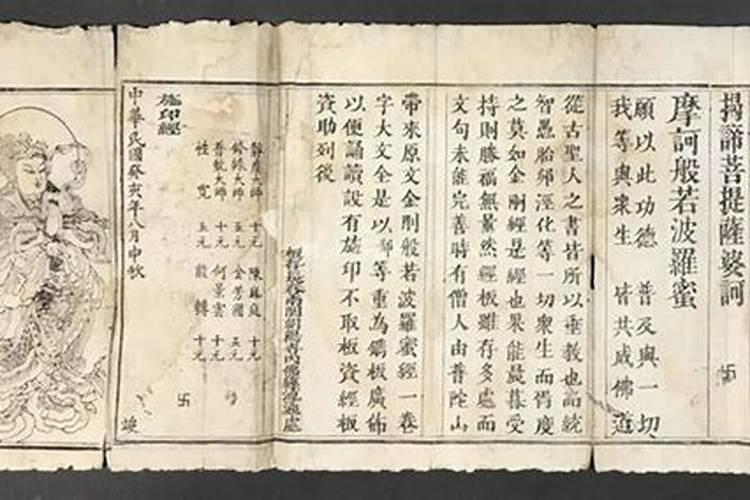 揭諦菩提薩婆訶
卍
摩訶般若波羅蜜
願以此功德　普及與一切
我等與衆生　皆共成佛道
從古聖人之書皆所以垂教也而統
智愚胎卵溼化等一切衆生而胥度
之莫如金剛經是經也果能晨暮受
持則勝福無量然經板雖存多處而
文句未能完善時有僧人由普陀山
帶來原文金剛般若波羅蜜經一卷
字大文全是以 等重為鐫板廣佈
以便誦讀設有施印不取板資經板
資助列後
大師　十元　陳 庭　十元
大師　五元　金芳國　五元
大師　十元　何景雲　十元
性寬　五元　殿轉　十元
施印經
卍
中華民國癸亥年八月中秋
竣